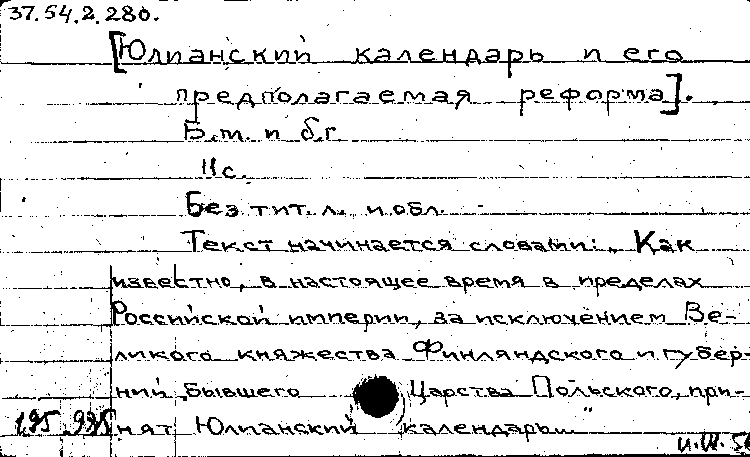 37.54.2.280.
[Юлианский календарь и его
предполагаемая реформа].
Б.т. и б.г.
11с.
Без тит. л. и обл.
Текст начинается словами: „Как
известно, в настоящее время в пределах
Российской империи, за исключением Ве-
ликого княжества Финляндского и губер-
ний бывшего Царства Польского, при-
нят Юлианский календарь..."